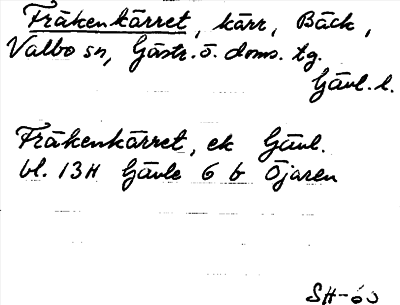 Fräkenkärret, kärr, Bäck,
Valbo sn, Gästr. ö. doms. tg.
Gävl. l.
Fräkenkärret, ek Gävl.
bl. 13H Gävle 6 b Öjaren